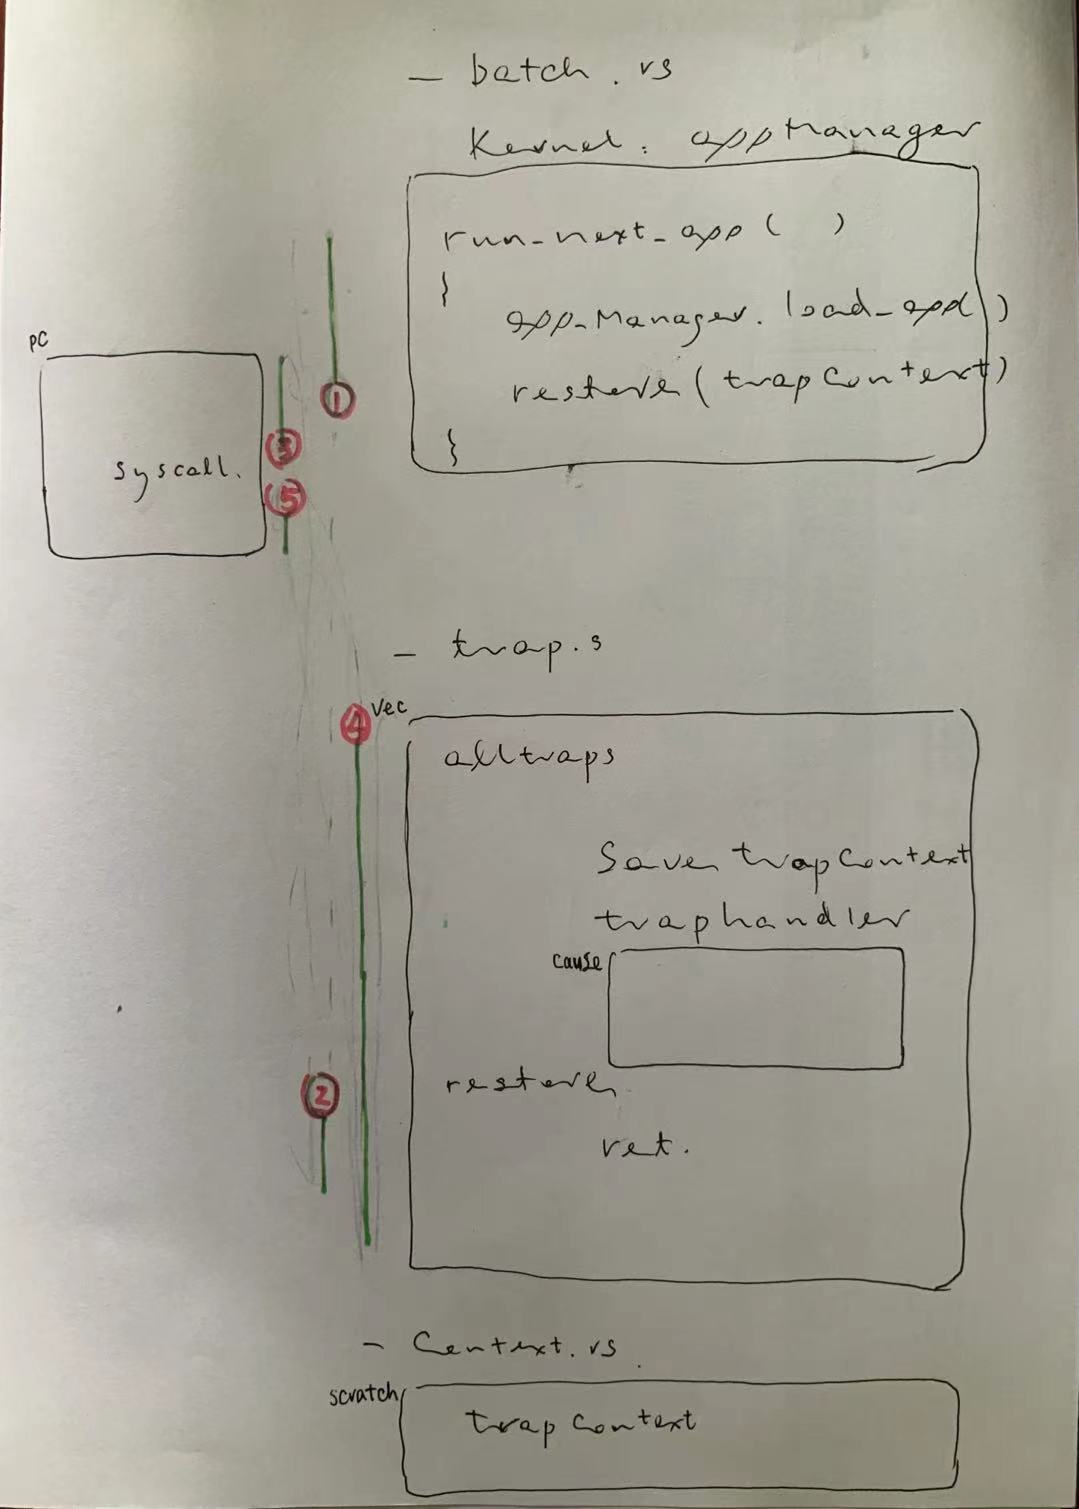 - batch.rs
Kernel: appManager
run_next_app( )
{
app_Manager.load_app()
restore(trapContext)
}
①
PC
③
syscall.
⑤
- trap.s
④ Vec
alltraps
Save trapContext
traphandler
cause
restore
②
ret.
- Context.rs
scratch
trapContext